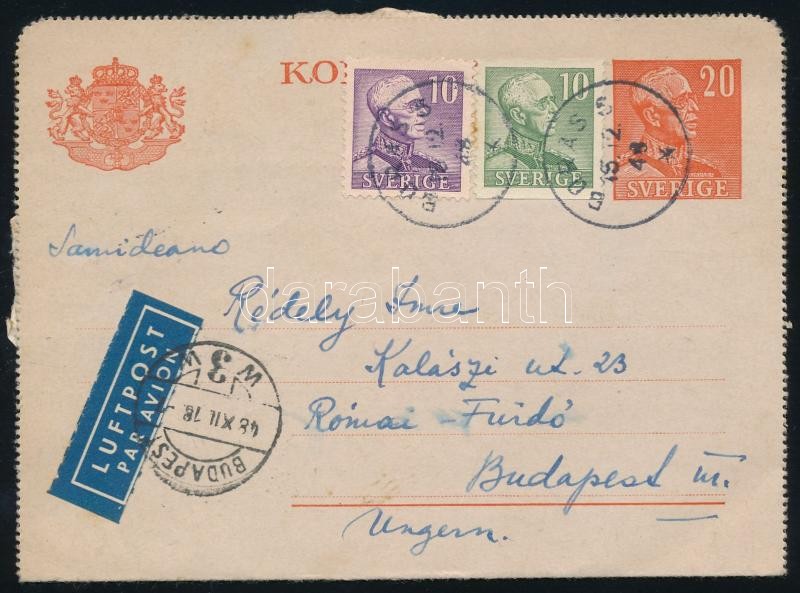 KO
10
SVERIGE
10
SVERIGE
20
SVERIGE
BODAS
15 12
48
Samideano
Rédely Imre
Kalászi ut. 23
Római-Fürdő
Budapest III.
Ungern.
LUFTPOST
PAR AVION
BUDAPEST
48 XII. 18.
3
darabanth